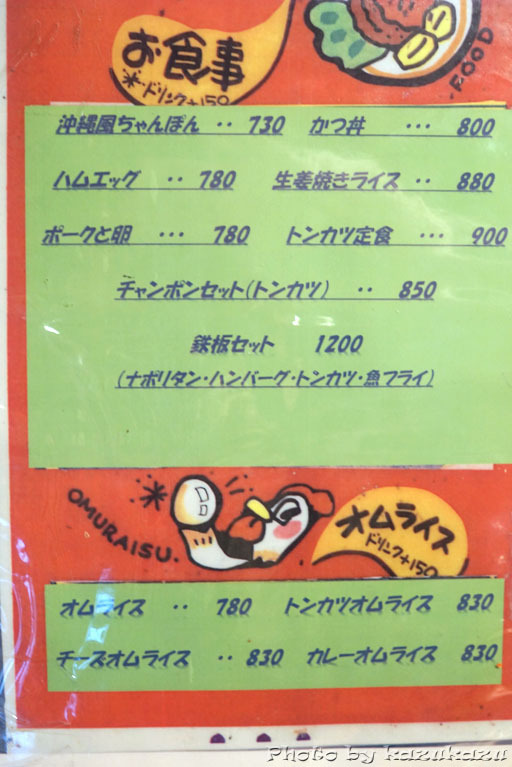 お食事
*ドリンク+150
FOOD
沖縄風ちゃんぽん ‥ 730 かつ丼 … 800
ハムエッグ ‥ 780 生姜焼きライス ‥ 880
ポークと卵 … 780 トンカツ定食 … 900
チャンポンセット(トンカツ) ‥ 850
鉄板セット 1200
(ナポリタン・ハンバーグ・トンカツ・魚フライ)
OMURAISU.
オムライス
ドリンク+150
オムライス ‥ 780 トンカツオムライス 830
チーズオムライス ‥ 830 カレーオムライス 830
Photo by kazukazu